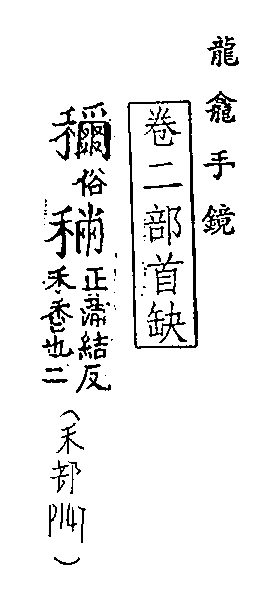 龍龕手鏡
卷二部首缺
穪俗
正蒲結反
禾香也二
(禾部P147)